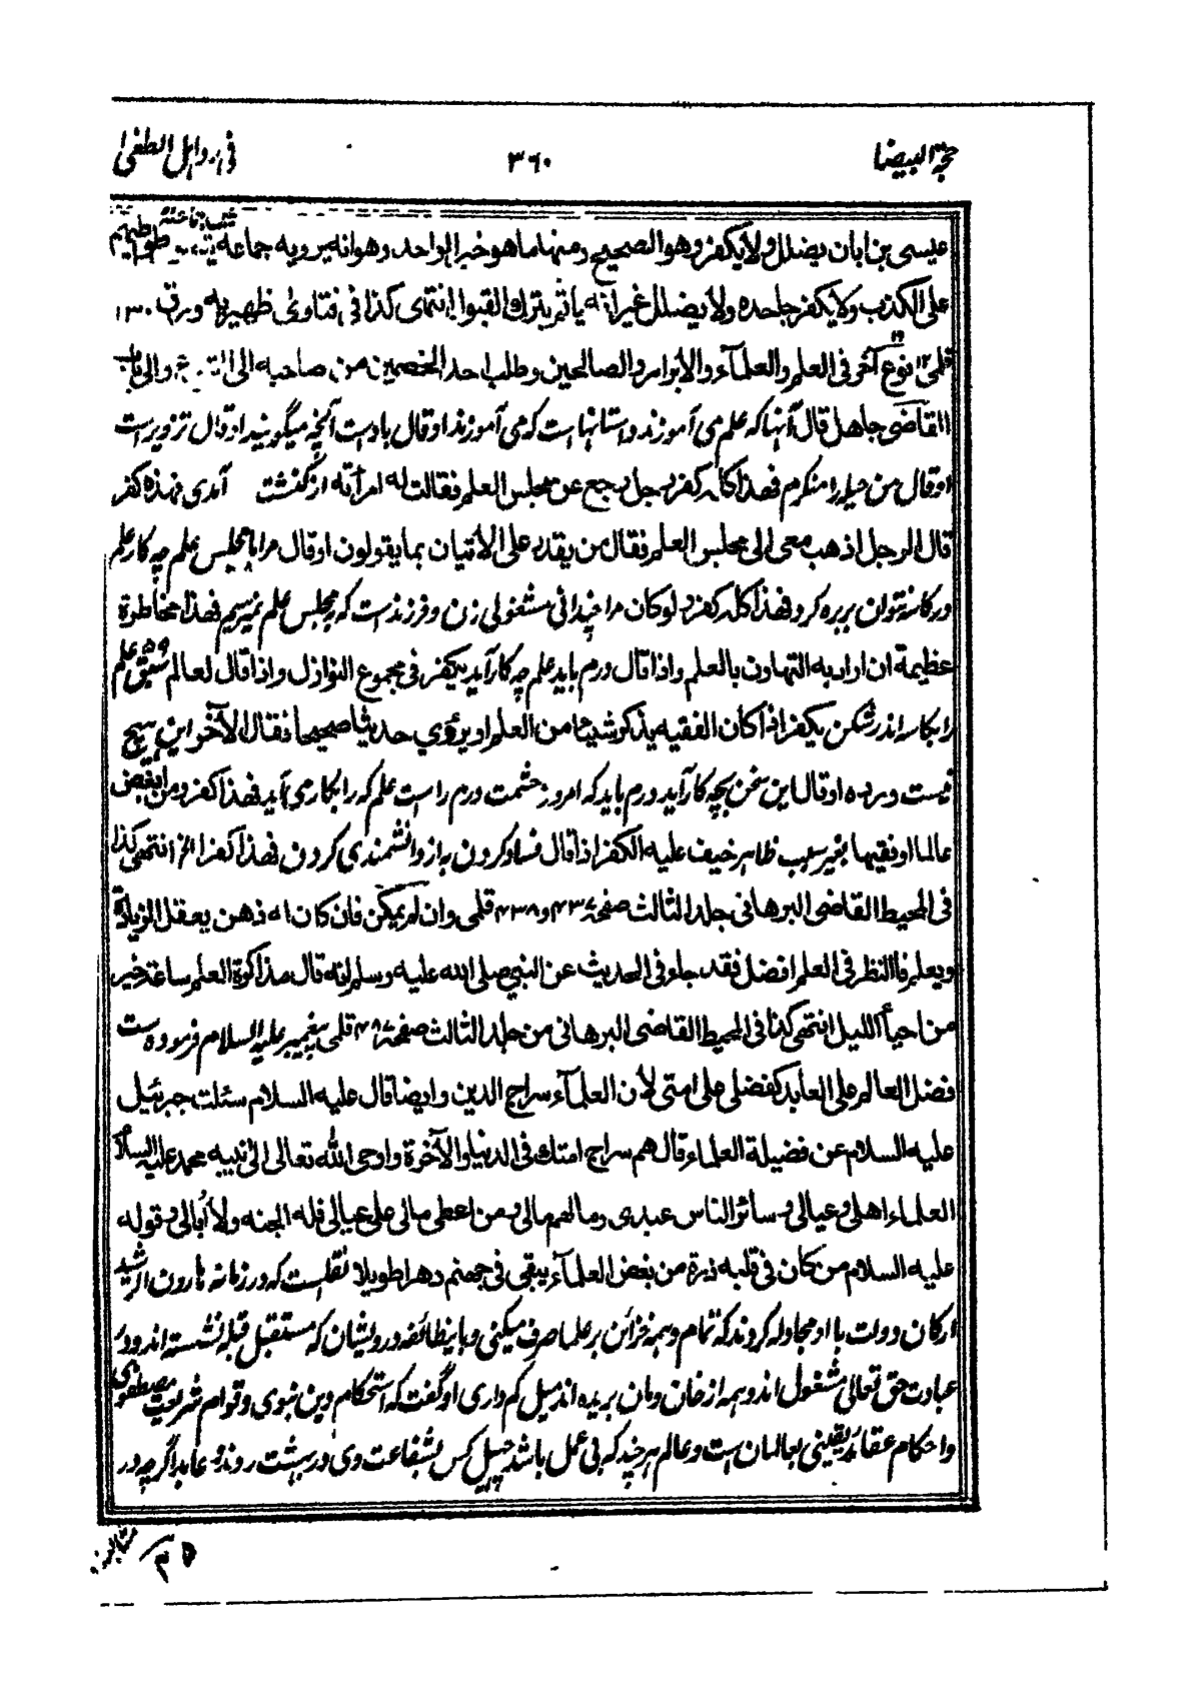 حجة البيضا ٣٦٠ فی
عيسى بن ابان يضلل ولا يكفر وهو الصحيح ومنها ما هو خبر الواحد وهو انه يرويه جماعه
على الكذب ولا يكفر جاحده ولا يضلل غير انه ياثم بترك القبول انتهى كذا فى فتاوى ظهيريه ورق ١٣٠
قلمى نوع آخر فى العلم والعلمآء والأبرار والصالحين وطلب احد الخصمين من صاحبه الى
القاضى جاهل قال آنها كه علم مى آموزند داستانها است كه مى آموزند او قال باد است آنچه ميگويند او قال تزوير است
او قال من حيله را منكرم فهذا كله كفر رجل يجع عن مجلس العلم فقالت له امرأته از كنشت آمدى فهذه كفر
قال الرجل اذهب معى الى مجلس العلم فقال من يقدر على الاتيان بما يقولون او قال مرا با مجلس علم چه كار علم
در كاسه نتوان بريده كرد فهذا كله كفر لو كان مرا چندانى مشغولى زن و فرزند است كه به مجلس علم نميرسيم فهذا مخاطرة
عظيمة ان اراد به التهاون بالعلم واذا قال درم بايد علم چه كار آيد يكفر فى مجموع النوازل واذا قال لعالم علم
را بكاسه اندر شكن يكفر اذا كان الفقيه يذكر شيئا من العلم او يروي حديثا صحيحا فقال الآخر اين هيچ
نيست ورده او قال اين سخن بچه كار آيد درم بايد كه امروز حشمت درم راست علم كه را بكار مى آيد فهذا كفر ومن ابغض
عالما او فقيها بغير سبب ظاهر خيف عليه الكفر اذا قال فساد كردن به از دانشمندى كردن فهذا كفر الخ انتهى كذا
فى المحيط القاضى البرهانى جلد الثالث صفحه ٤٣٧ و ٤٣٨ قلمى وان لم يمكن فان كان له ذهن يعقل الزيادة
ويعلم فالنظر فى العلم افضل فقد جاء فى الحديث عن النبي صلى الله عليه وسلم انه قال مذاكرة العلم ساعة خير
من احيأ الليل انتهى كذا فى المحيط القاضى البرهانى من جلد الثالث صفحه قلمى پيغمبر عليه السلام فرموده است
فضل العالم على العابد كفضلى على امتى لأن العلمآء سراج الدين وايضا قال عليه السلام سئلت جبرئيل
عليه السلام عن فضيلة العلماء قال هم سراج امتك فى الدنيا والآخرة واوحى الله تعالى الى نبيه محمد عليه السلام
العلماء اهلى وعيالى وسائر الناس عبدى ومالهم مالى ومن اعطى مالى على عيالى فله الجنه ولا أبالى وقوله
عليه السلام من كان فى قلبه ذرة من بغض العلمآء يبقى فى جهنم دهرا طويلا نقلست كه در زمانه هارون الرشيد
اركان دولت با او مجادله كردند كه تمام وهمه خزائن بر علما صرف ميكنى و باينطائفه درويشان كه مستقبل قبله نشسته اند ودر
عبادت حق تعالى مشغول اند وهمه از خان ومان بريده اند ميل كم دارى او گفت كه استحكام دين نبوى و قوام شريعت مصطفوى
واحكام عقائد يقينى بعالمان است وعالم هر چند كه بى عمل باشد چهل كس بشفاعت وى در بهشت روند و عابد اگر چه در